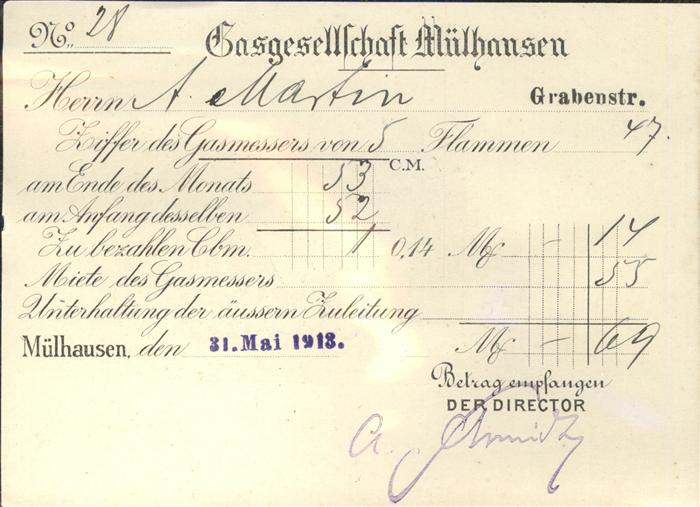 No. 28
Gasgesellschaft Mülhausen
Herrn A. Martin Grabenstr.
Ziffer des Gasmessers von 5 Flammen 47.
C.M.
am Ende des Monats 53
am Anfang desselben 52
Zu bezahlen Cbm. 1 0,14 Mk - 14
Miete des Gasmessers 55
Unterhaltung der äussern Zuleitung
Mülhausen, den 31. Mai 1913. Mk - 69
Betrag empfangen
DER DIRECTOR
A. Schmidt